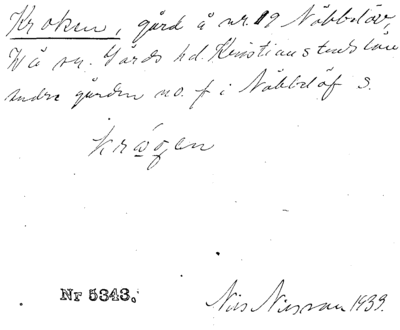 Kroken, gård å nr. 19 Nöbbelöv,
Wä sn. Gärds hd. Kristianstads län
andra gården no. f. i Nöbbelöf s.
krågen
Nr 5343.
Nils Nilsson 1939.